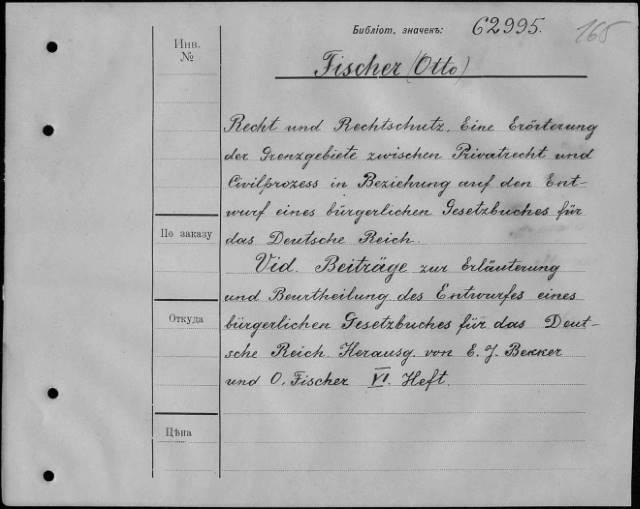 Библіот. значекъ: 62995. 165
Инв.
№
Fischer (Otto)
Recht und Rechtschutz. Eine Erörterung
der Grenzgebiete zwischen Privatrecht und
Civilprozess in Beziehung auf den Ent-
wurf eines bürgerlichen Gesetzbuches für
das Deutsche Reich.
По заказу
Vid. Beiträge zur Erläuterung
und Beurtheilung des Entwurfes eines
Откуда
bürgerlichen Gesetzbuches für das Deut-
sche Reich. Herausg. von E. J. Bekker
und O. Fischer VI. Heft.
Цѣна